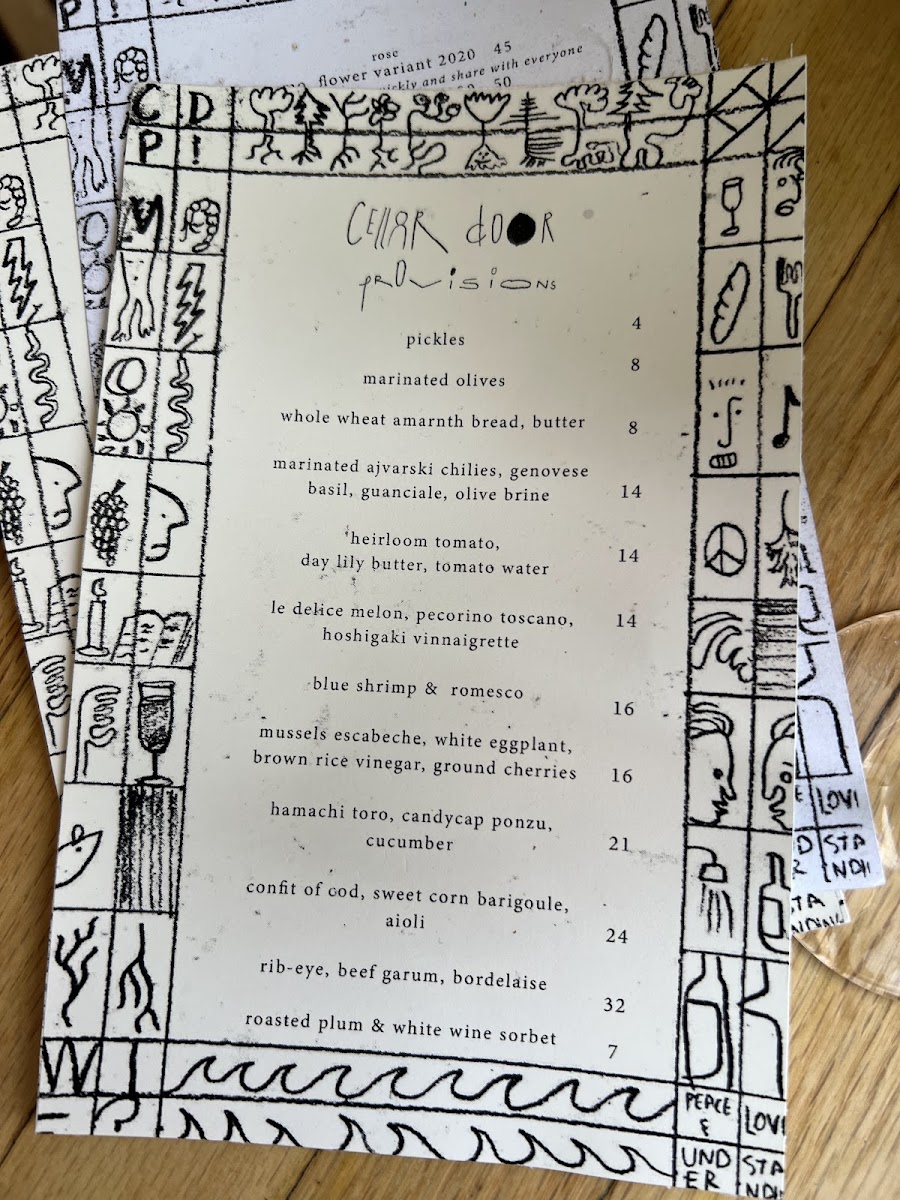 P !
rose
flower variant 2020 45
and share with everyone
50
C D
P !
CEllAR dOOR
PROVISIONS
pickles 4
marinated olives 8
whole wheat amarnth bread, butter 8
marinated ajvarski chilies, genovese
basil, guanciale, olive brine 14
heirloom tomato,
day lily butter, tomato water 14
le delice melon, pecorino toscano, 14
hoshigaki vinnaigrette
blue shrimp & romesco 16
mussels escabeche, white eggplant,
brown rice vinegar, ground cherries 16
hamachi toro, candycap ponzu,
cucumber 21
confit of cod, sweet corn barigoule,
aioli 24
rib-eye, beef garum, bordelaise 32
roasted plum & white wine sorbet 7
PEACE
&
LOVI
UND
ER
STA
NDII
LOVI
STA
NDII
STA
NDING